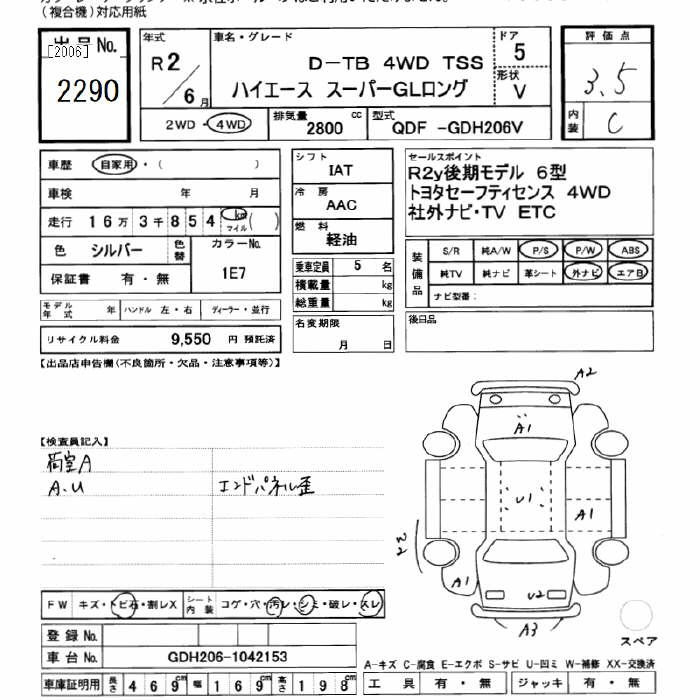 (複合機)対応用紙
出品No.
[2006]
2290
年式
R2/6月
車名・グレード
D-TB 4WD TSS
ハイエース スーパーGLロング
ドア
5
形状
V
評価点
3.5
内装
C
2WD・4WD
排気量
2800 cc
型式
QDF -GDH206V
車歴 自家用・( )
車検 年 月
走行 16万3千854 km マイル ( )
色 シルバー 色替
カラーNo.
1E7
保証書 有・無
モデル年式 年 ハンドル 左・右 ディーラー・並行
リサイクル料金 9,550 円 預託済
シフト
IAT
冷房
AAC
燃料
軽油
乗車定員 5 名
積載量 kg
総重量 kg
名変期限
月 日
セールスポイント
R2y後期モデル 6型
トヨタセーフティセンス 4WD
社外ナビ・TV ETC
装備品
S/R 純A/W P/S P/W ABS
純TV 純ナビ 革シート 外ナビ エアB
ナビ型番:
後日品
【出品店申告欄(不良箇所・欠品・注意事項等)】
【検査員記入】
荷室A
A.U
エンドパネル歪
A2
A1
U1
A1
A1
U2
A3
スペア
FW キズ・トビ石・割レX
シート内装 コゲ・穴・汚レ・シミ・破レ・スレ
登録No.
車台No. GDH206-1042153
車庫証明用 長さ 469cm 幅 169cm 高さ 198cm
A-キズ C-腐食 E-エクボ S-サビ U-凹ミ W-補修 XX-交換済
工具 有・無 ジャッキ 有・無